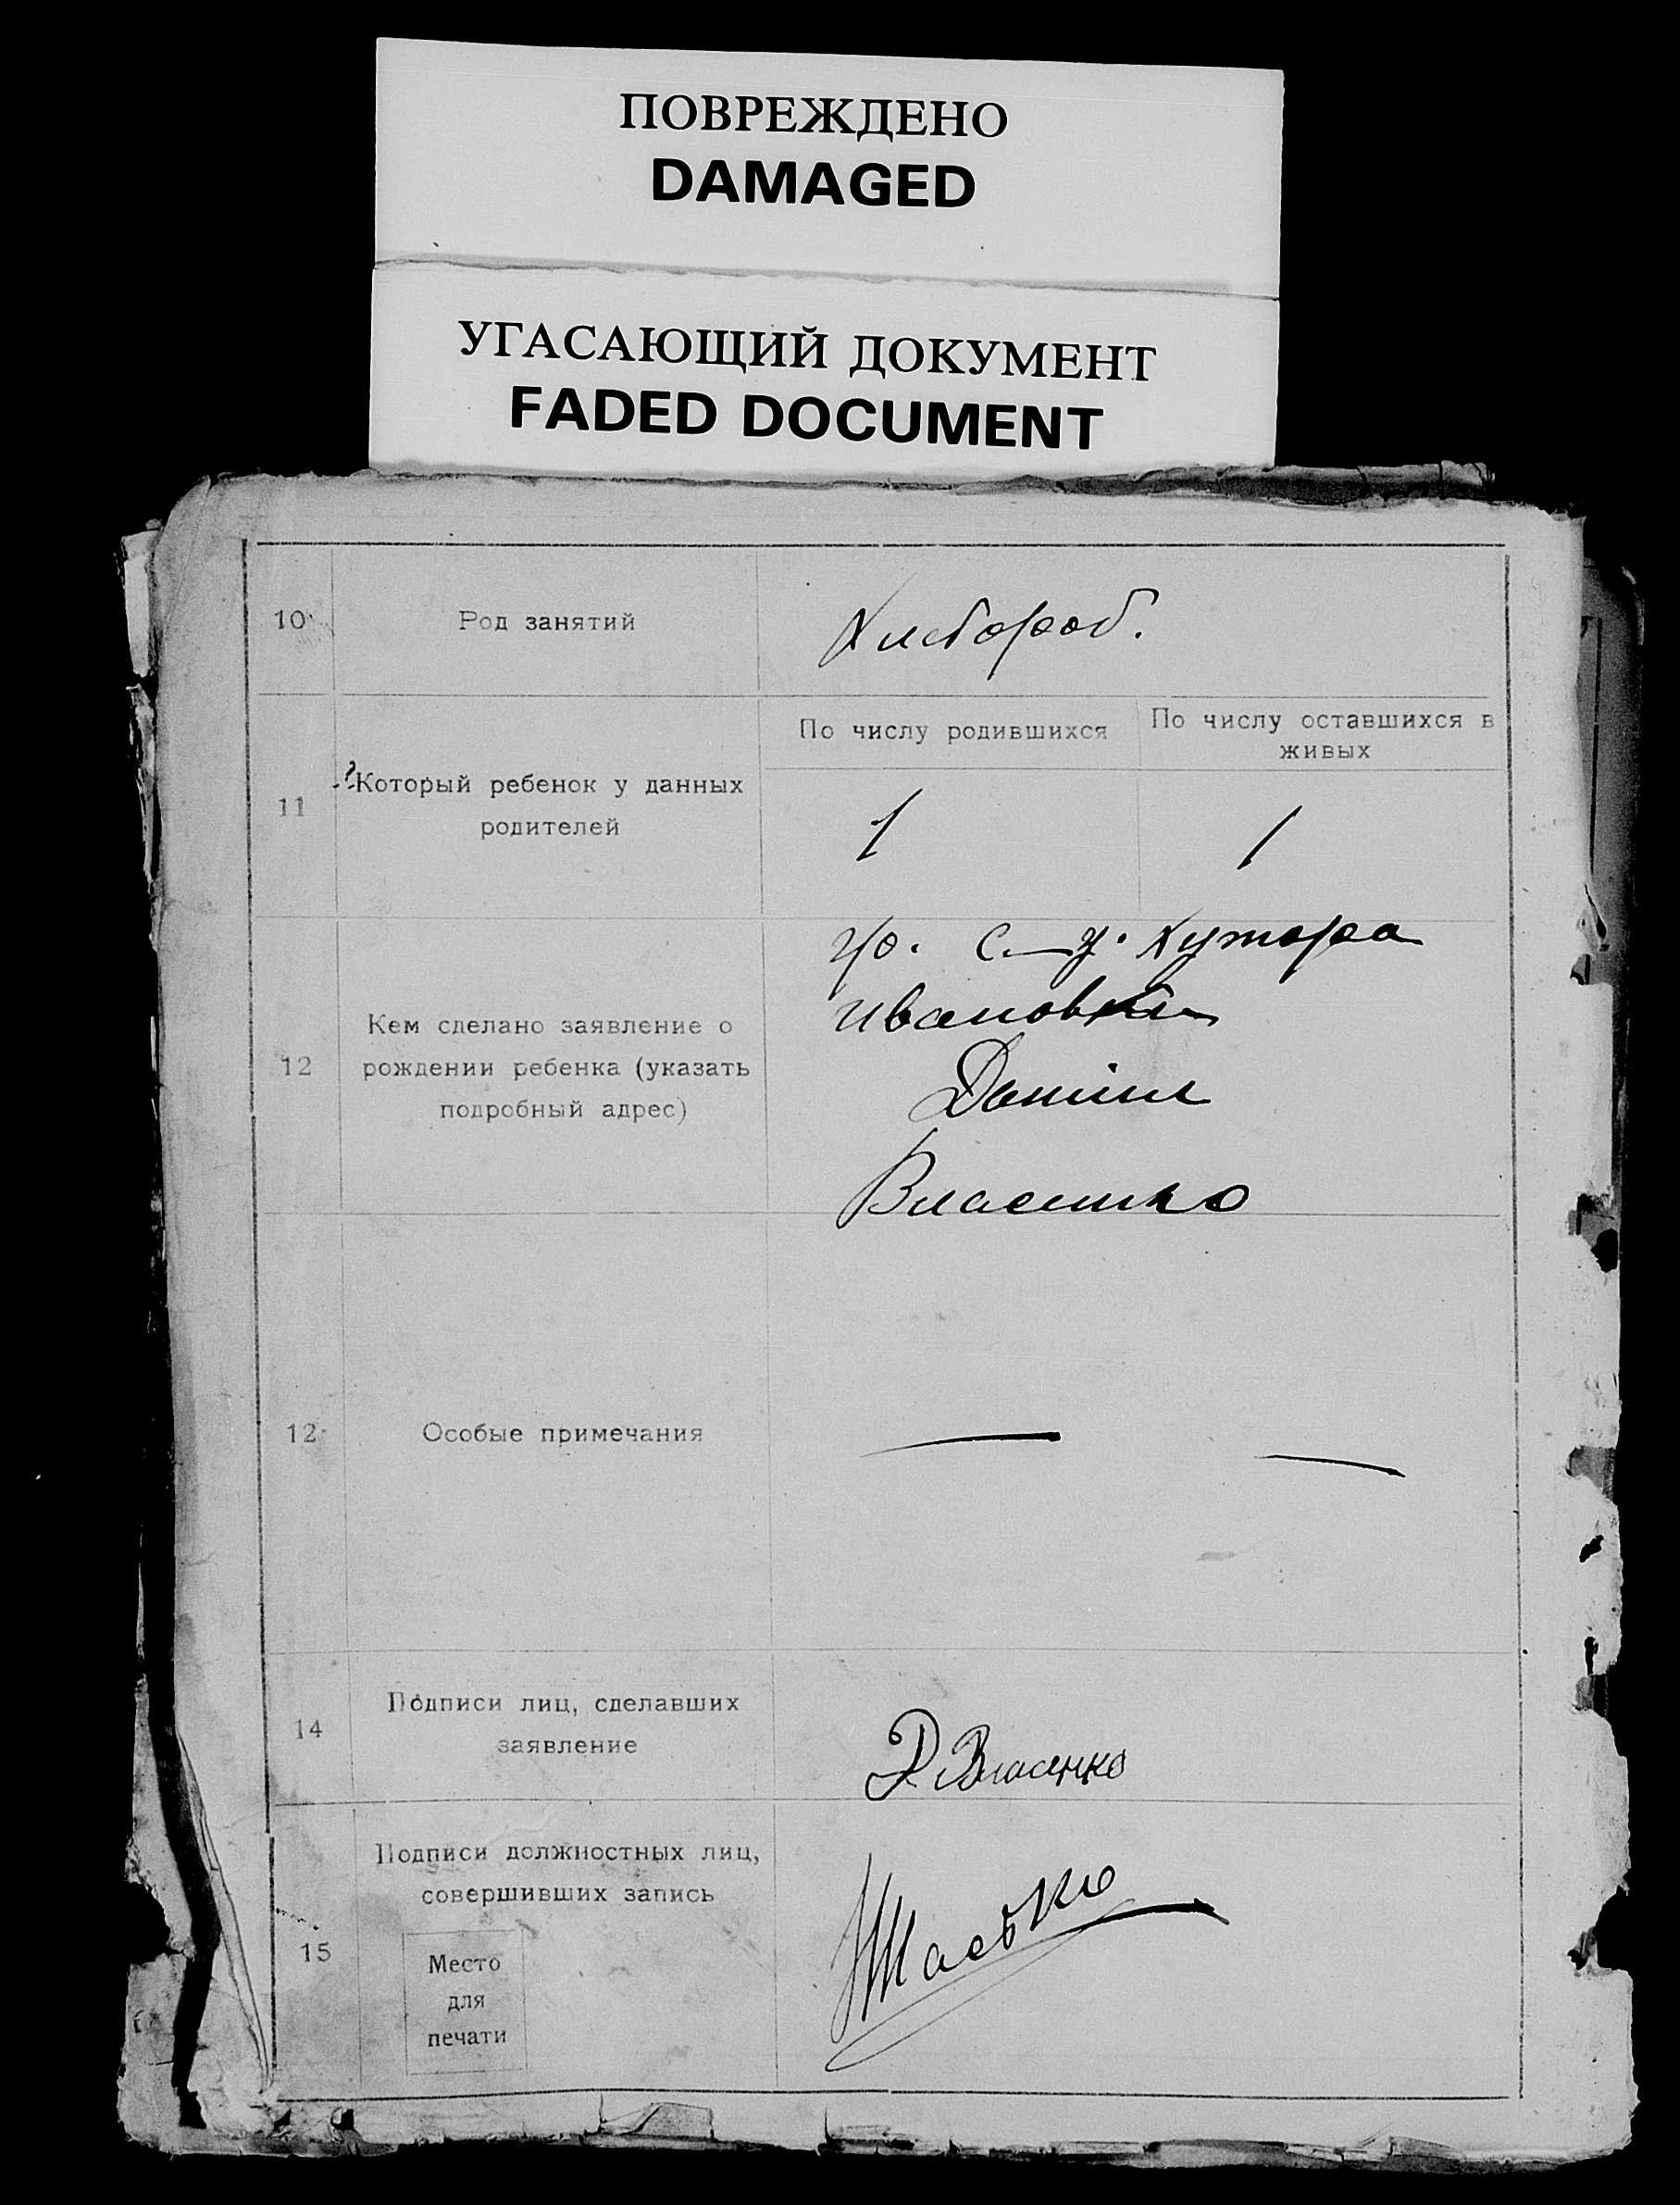 ПОВРЕЖДЕНО
DAMAGED
УГАСАЮЩИЙ ДОКУМЕНТ
FADED DOCUMENT
10 Род занятий Хлебороб.
По числу родившихся По числу оставшихся в
живых
11 Который ребенок у данных
родителей 1 1
гр. с-з. хутора
Ивановки
12 Кем сделано заявление о
рождении ребенка (указать
подробный адрес)
Даниил
Власенко
12 Особые примечания — —
14 Подписи лиц, сделавших
заявление
Д. Власенко
15 Подписи должностных лиц,
совершивших запись
Место
для
печати